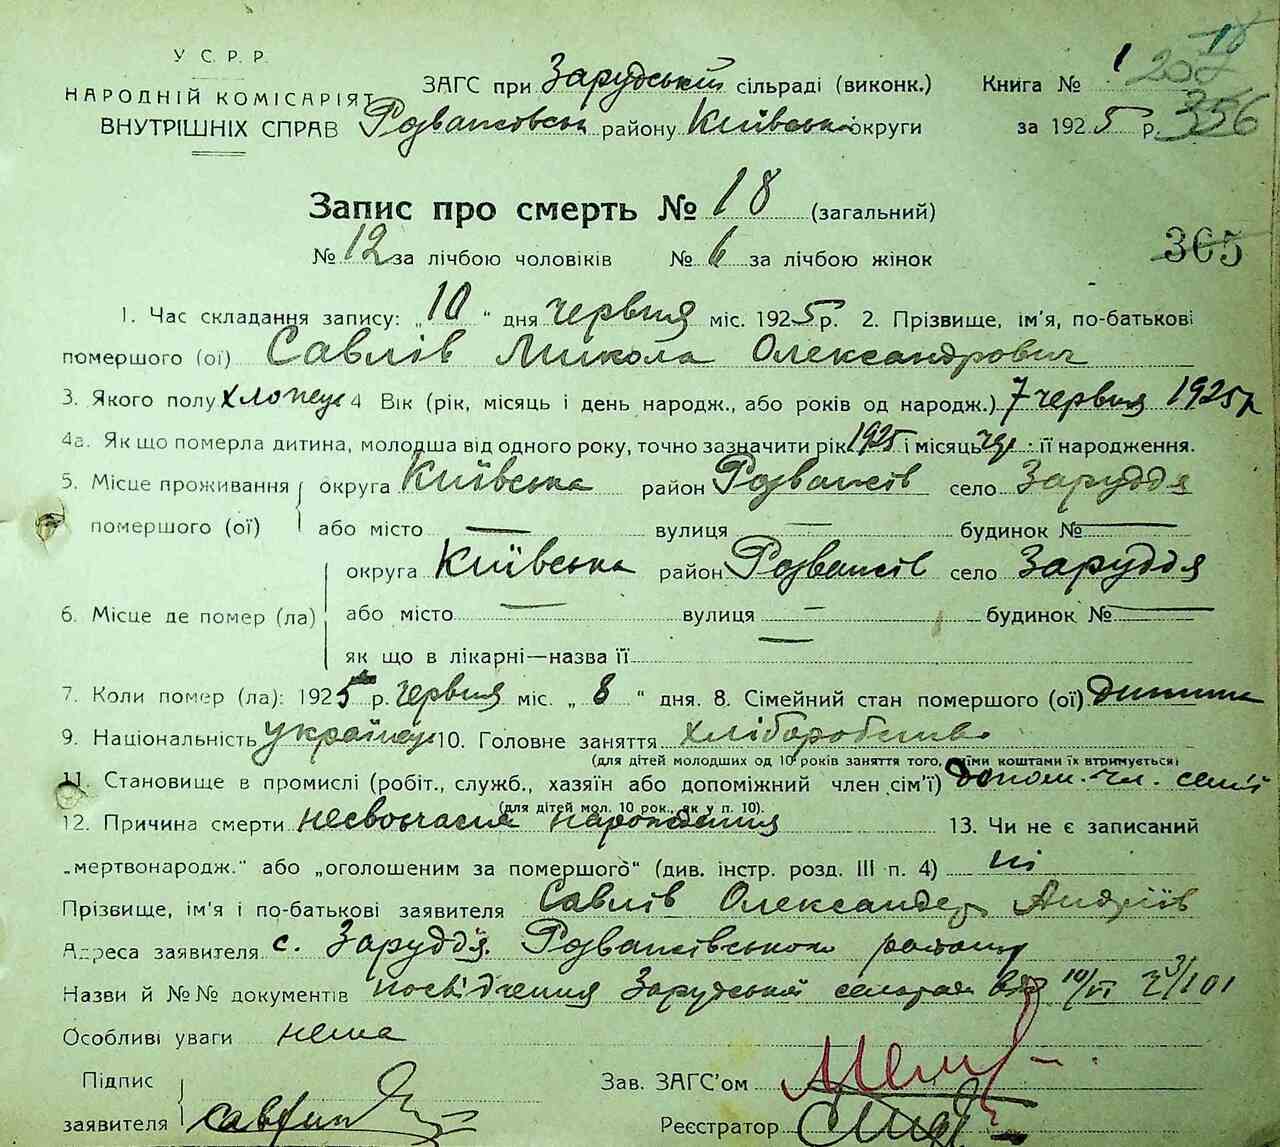 У С. Р. Р.
НАРОДНІЙ КОМІСАРІЯТ
ВНУТРІШНІХ СПРАВ
ЗАГС при Зарудській сільраді (виконк.)
Розважівськ району Київська округи
Книга № 1
за 1925 р.
18
207
356
Запис про смерть № 18 (загальний)
№ 12 за лічбою чоловіків № 6 за лічбою жінок
365
1. Час складання запису: „10" дня червня міс. 1925 р. 2. Прізвище, ім'я, по-батькові
помершого (ої) Савлів Микола Олександрович
3. Якого полу хлопець 4 Вік (рік, місяць і день народж., або років од народж.) 7 червня 1925 р
4а. Як що померла дитина, молодша від одного року, точно зазначити рік 1925 і місяць чер : її народження.
5. Місце проживання округа Київська район Розважів село Заруддя
помершого (ої) або місто — вулиця — будинок № —
округа Київська район Розважів село Заруддя
6. Місце де помер (ла) або місто — вулиця — будинок № —
як що в лікарні—назва її —
7. Коли помер (ла): 1925 р. червня міс. „ 8 " дня. 8. Сімейний стан помершого (ої) дитина
9. Національність українець 10. Головне заняття хліборобство
(для дітей молодших од 10 років заняття того, чиїми коштами їх втримується)
11. Становище в промислі (робіт., служб., хазяїн або допоміжний член сім'ї) допом. чл. сем'ї
(для дітей мол. 10 рок., як у п. 10).
12. Причина смерти несвоычасня народження 13. Чи не є записаний
„мертвонародж." або „оголошеним за помершого" (див. інстр. розд. III п. 4) ні
Прізвище, ім'я і по-батькові заявителя Савлів Олександер Андріїв
Адреса заявителя с. Заруддя Розважівського району
Назви й №№ документів посвідчення Зарудської від 10/VI
Особливі уваги нема
Підпис
заявителя
Зав. ЗАГС'ом
Реєстратор